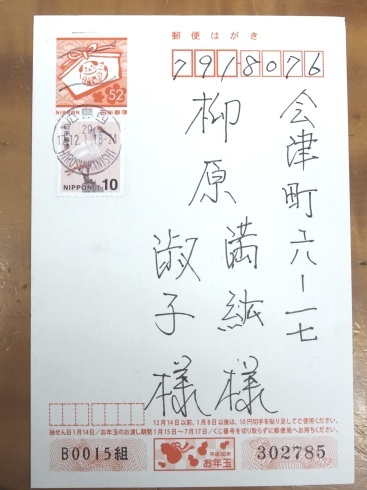 郵便はがき
7918076
52
NIPPON 日本郵便
17.12.1 18-24
HIROSHIMANISHI
NIPPON 10
会津町六八-一七
柳原満紘様
淑子様
12月14日以前、1月8日以後は、10円切手を貼り足してご使用ください。
抽せん日1月14日/お年玉のお渡し期間1月15日~7月17日/くじ番号を切り取らずに郵便局へお持ちください。
B0015組
平成30年
お年玉
302785